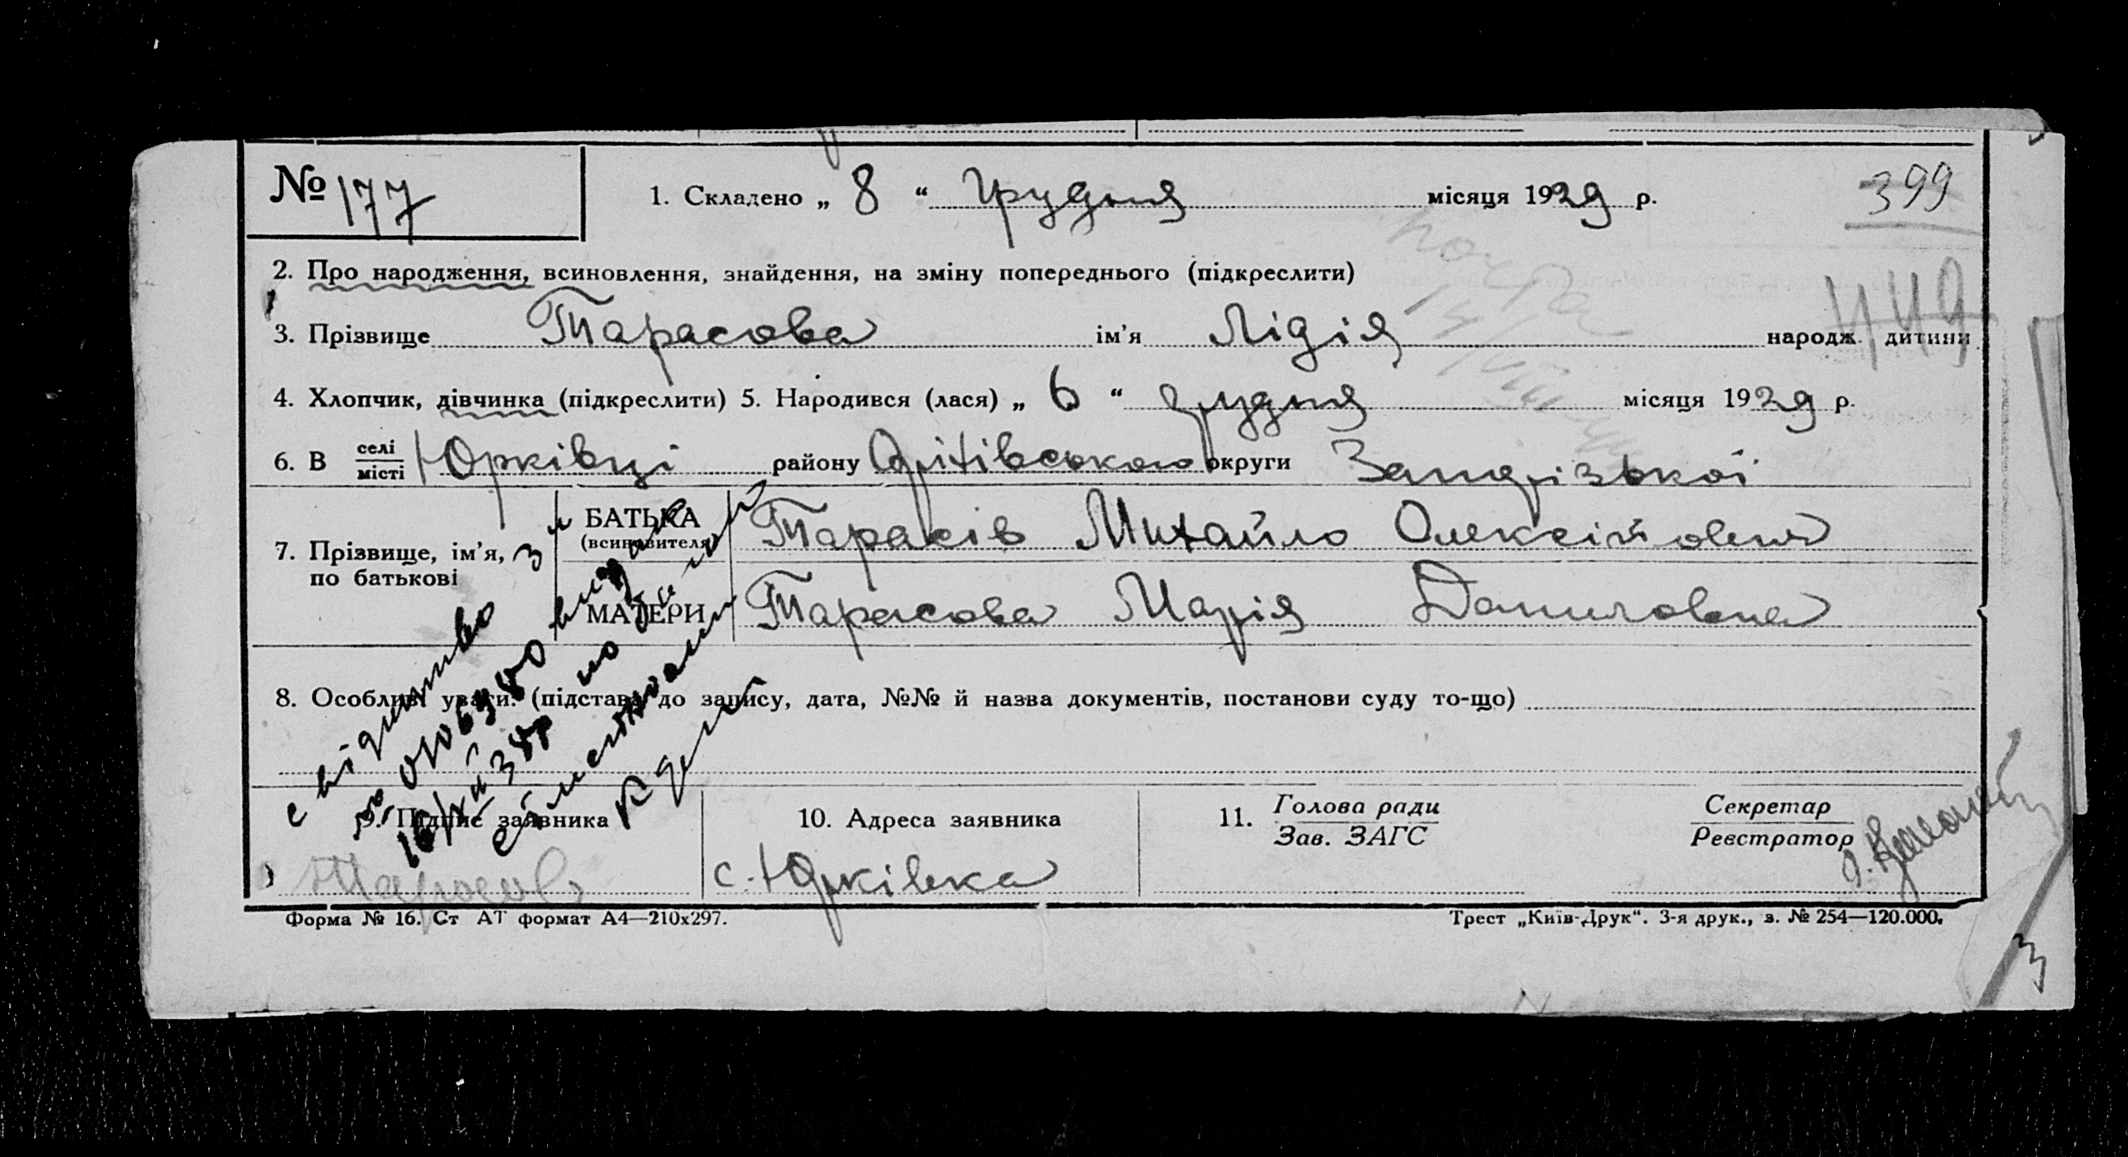 № 177
1. Складено „ 8 “ Грудня місяця 1929 р.
399
2. Про народження, всиновлення, знайдення, на зміну попереднього (підкреслити)
449
3. Прізвище Тарасова ім’я Лідія народж. дитини
4. Хлопчик, дівчинка (підкреслити) 5. Народився (лася) „ 6 “ грудня місяця 1929 р.
6. В селі/місті Юрківці району Оріхівського округи Запорізької
7. Прізвище, ім’я, по батькові
БАТЬКА (всиновителя) Тарасів Михайло Олексійович
МАТЕРИ Тарасова Марія Даниловна
8. Особливі уваги: (підстава до запису, дата, №№ й назва документів, постанови суду то-що)
9. Підпис заявника
10. Адреса заявника
11. Голова ради
Зав. ЗАГС
Секретар
Реєстратор
Тарасов
с. Юрківка
Форма № 16. Ст АТ формат А4—210х297.
Трест „Київ-Друк“. 3-я друк., з. № 254—120.000.
свідоцтво
3